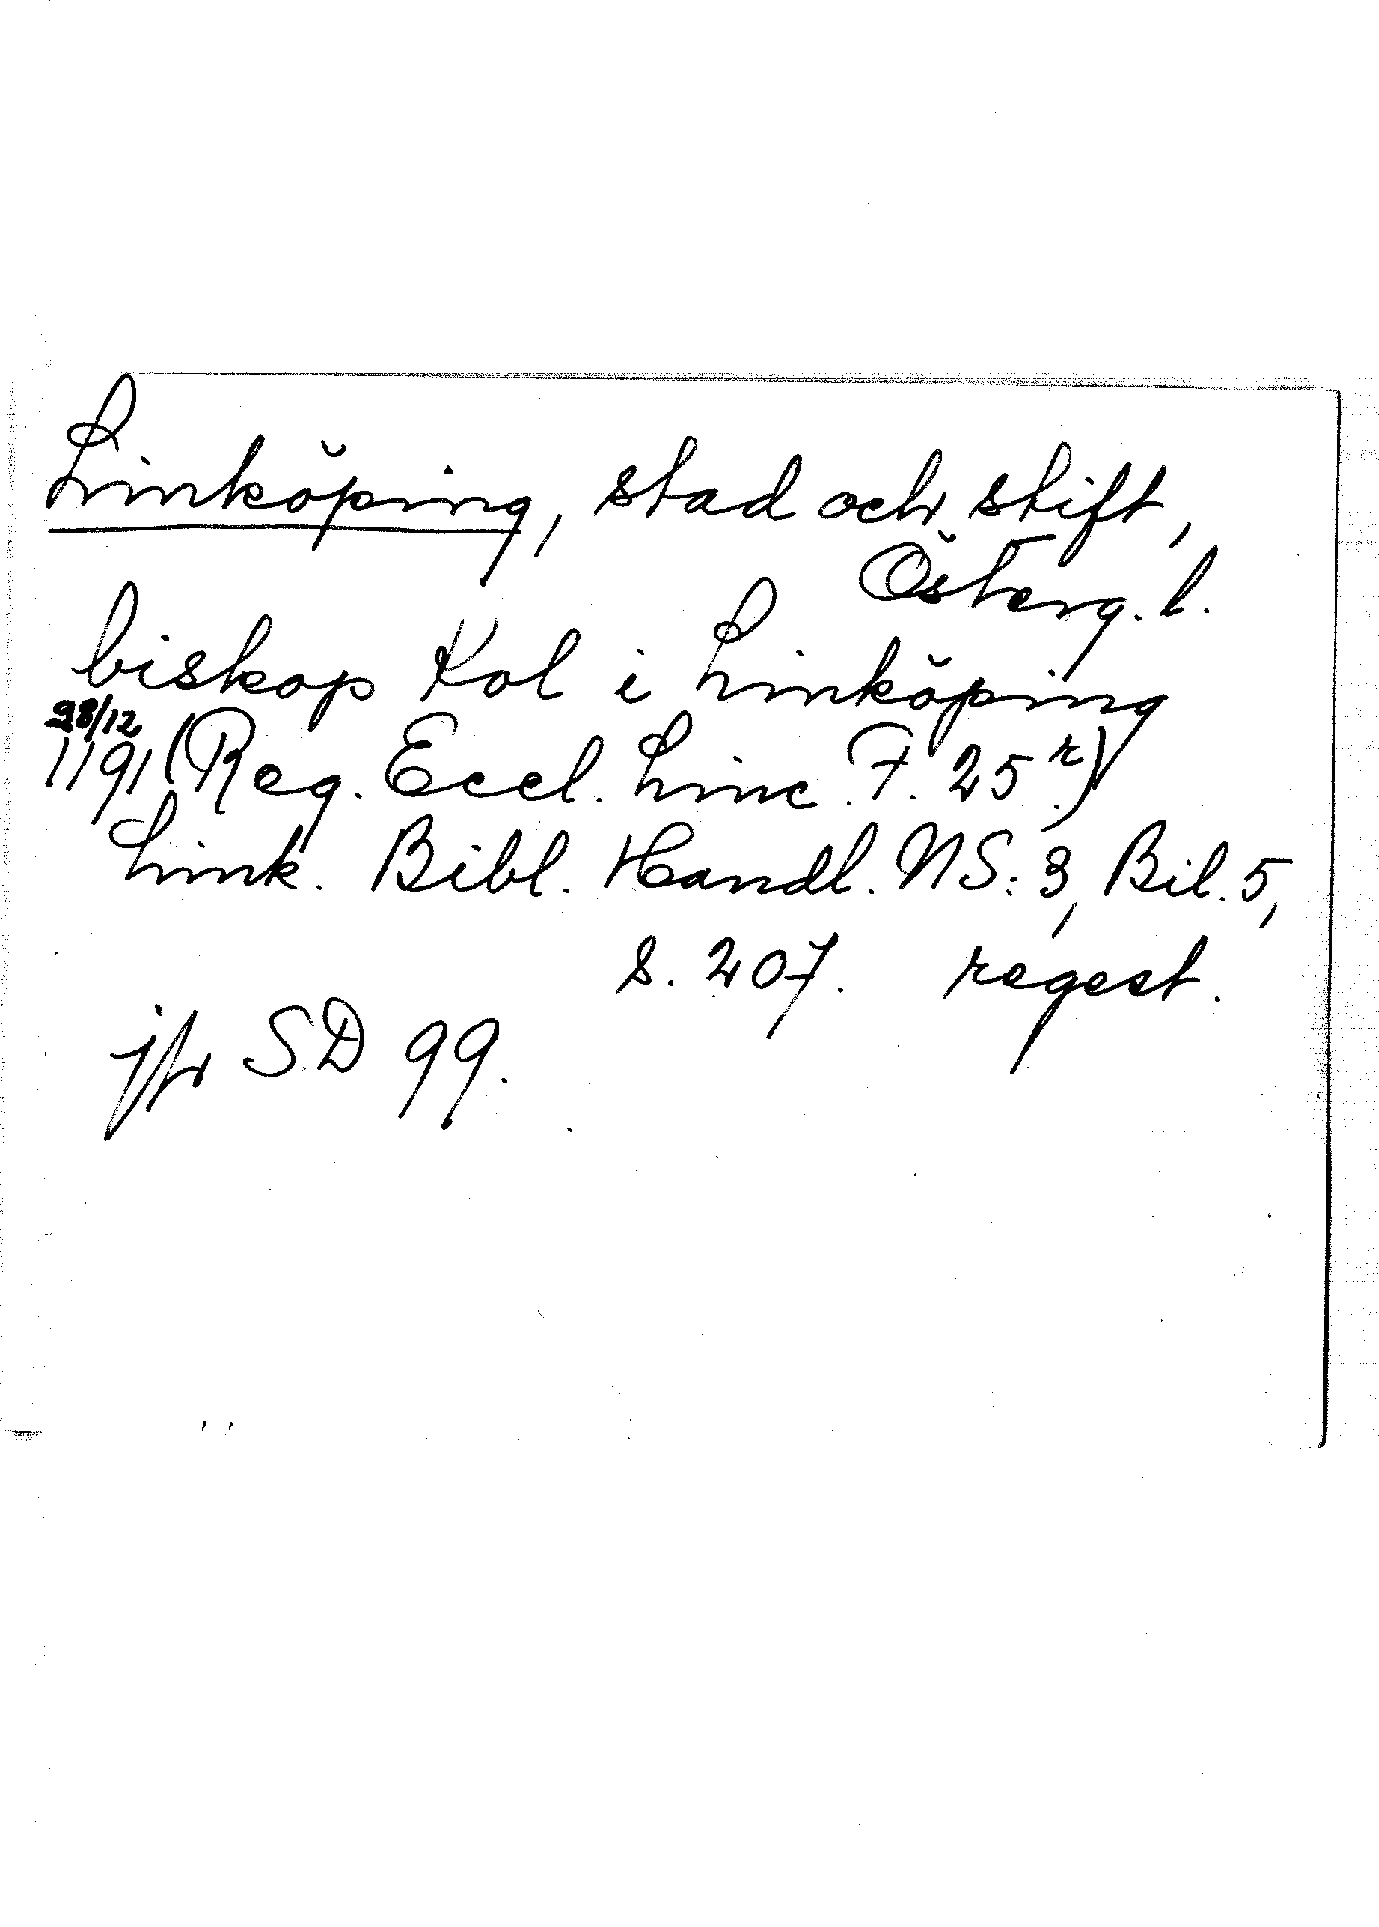 Linköping, stad och stift,
Österg. l.
biskop Kol i Linköping
28/12
1191 (Reg. Eccl. Linc. F. 25r.)
Link. Bibl. Handl. NS: 3, Bil. 5,
s. 207. regest.
jfr SD 99.